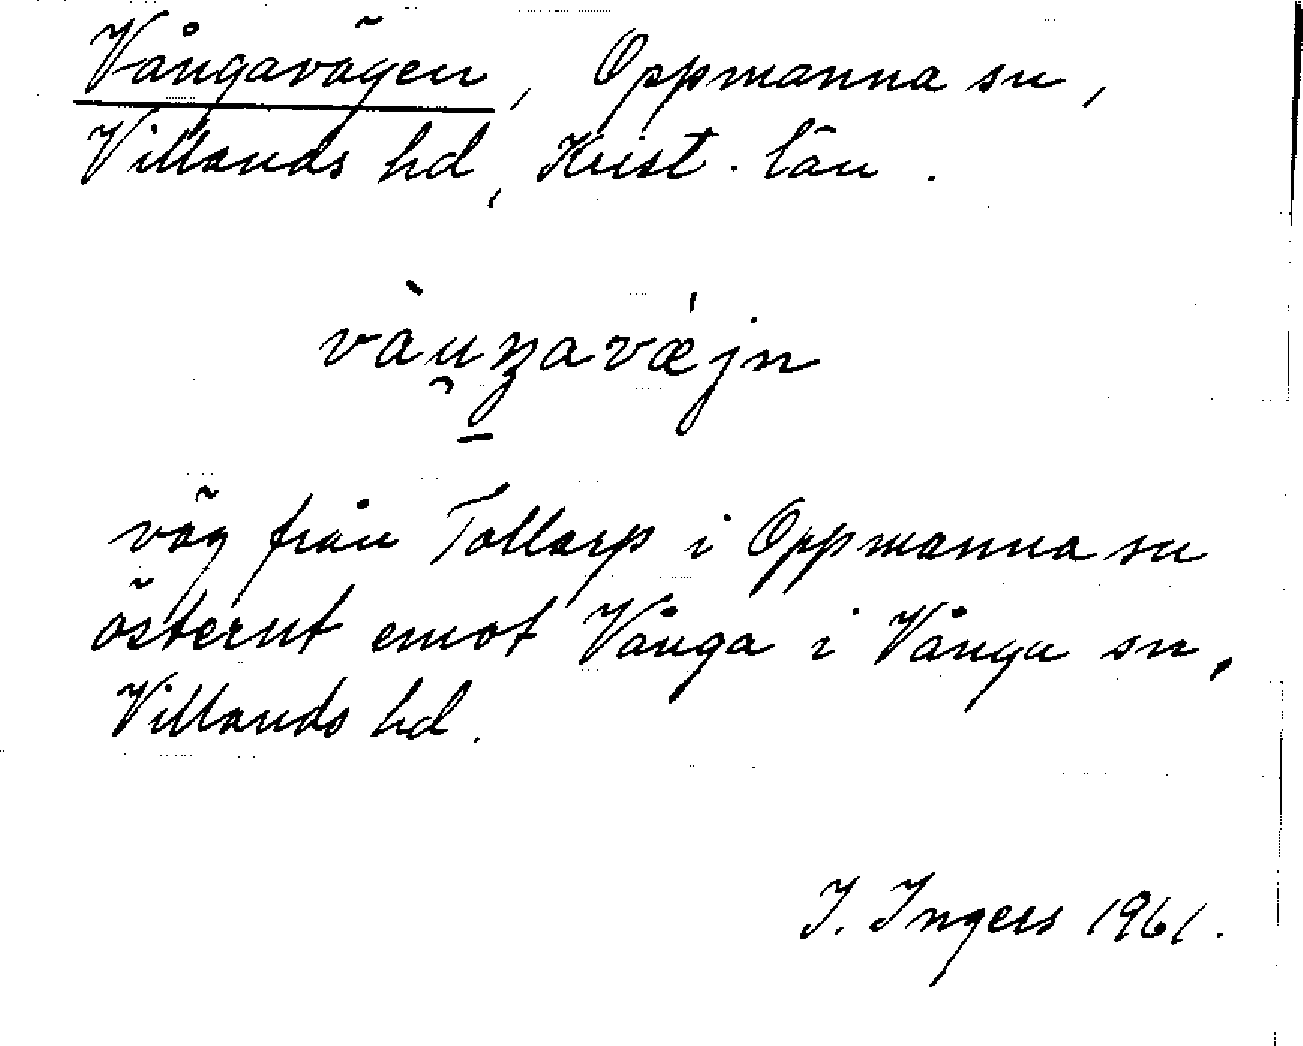 Vångavägen, Oppmanna sn,
Villands hd, Krist. län.
vàu̯ŋavæ̍jn
väg från Tollarp i Oppmanna sn
österut emot Vånga i Vånga sn,
Villands hd.
I. Ingers 1961.